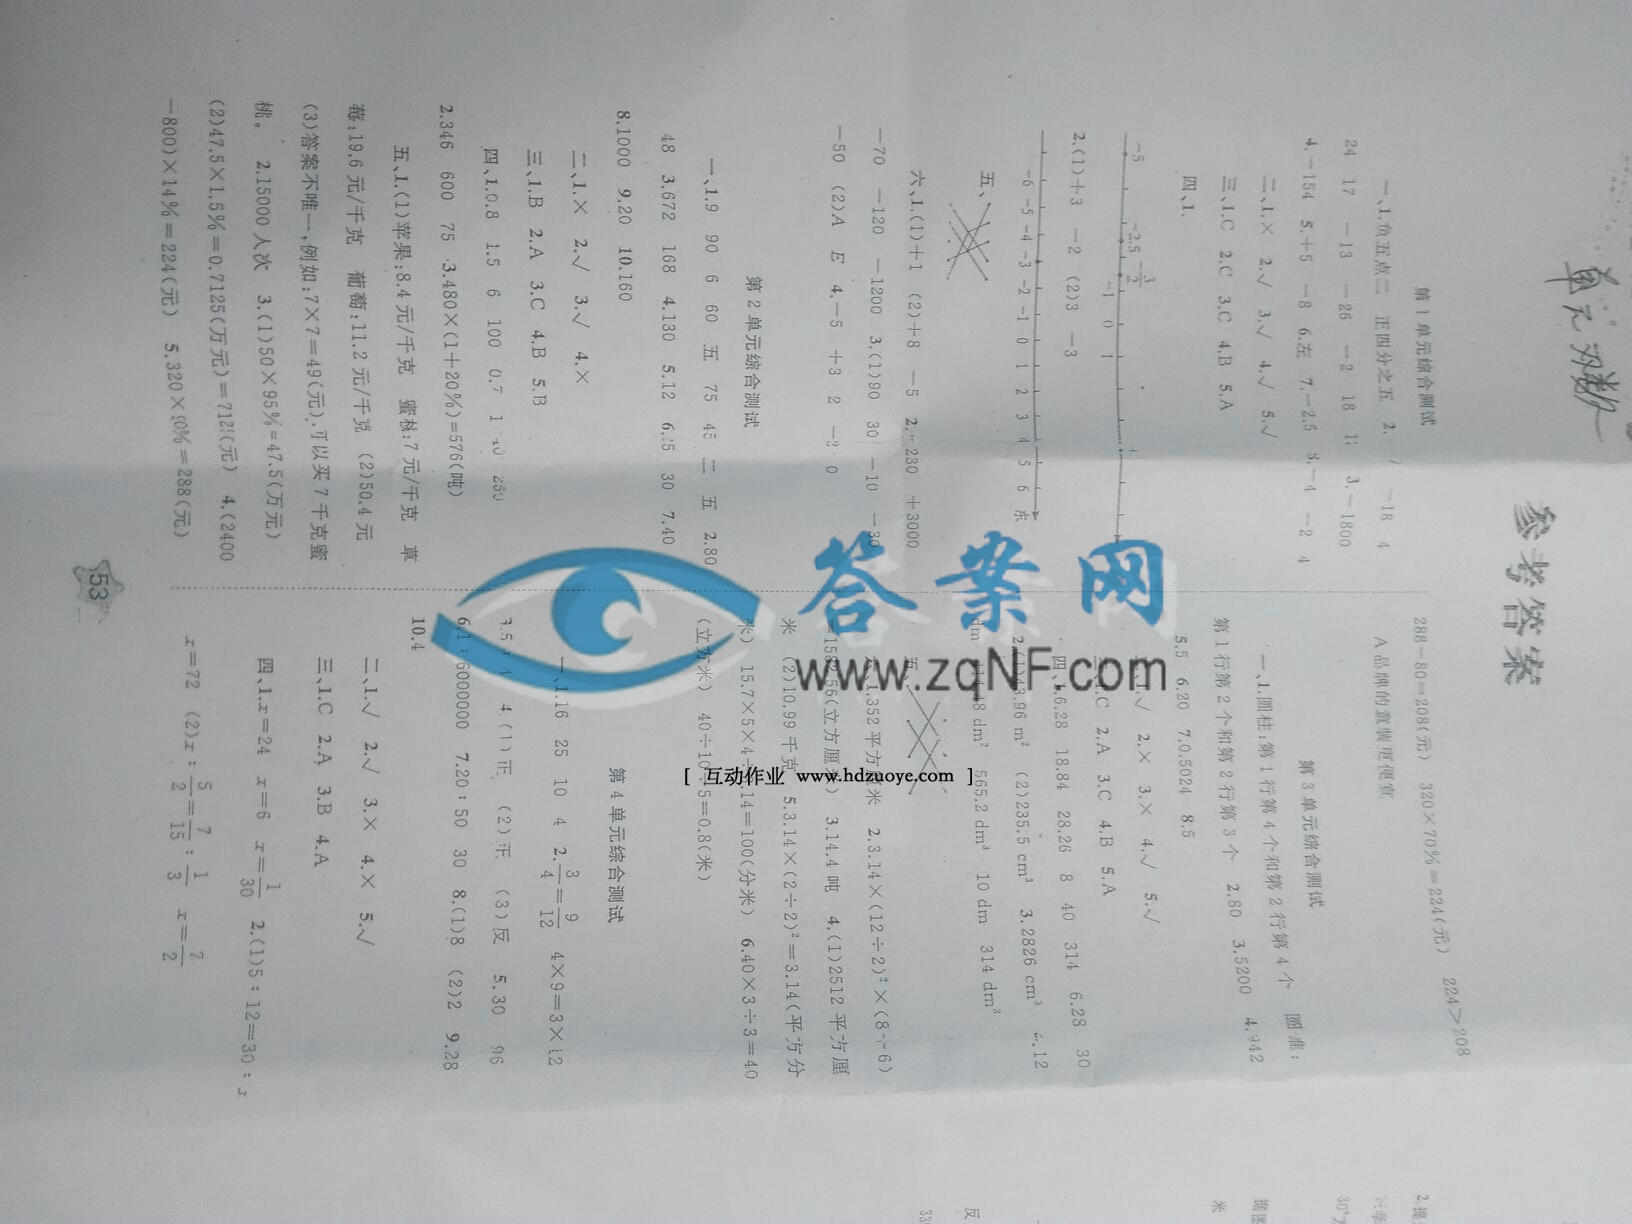 单元双数
参考答案
第1单元综合测试
一、1.负五点二 正四分之五 2. -18 4
24 17 -13 -26 -2 18 3.-1800
4.-154 5.+5 -8 6.左 7.-2.5 8.-4 -2 4
二、1.× 2.√ 3.√ 4.√ 5.√
三、1.C 2.C 3.C 4.B 5.A
四、1.
-5 -2.5 -3/2 -1 0 1
2.(1)+3 -2 (2)3 -3
-6 -5 -4 -3 -2 -1 0 1 2 3 4 5 6 东
五、
六、1.(1)+1 (2)+8 -5 2.-230 +3000
-70 -120 -1200 3.(1)90 30 -10 -30
-50 (2)A E 4.-5 +3 2 -2 0
第2单元综合测试
一、1.9 90 6 60 五 75 45 二 五 2.80
48 3.672 168 4.130 5.12 6.25 30 7.40
8.1000 9.20 10.160
二、1.× 2.√ 3.√ 4.×
三、1.B 2.A 3.C 4.B 5.B
四、1.0.8 1.5 6 100 0.7 1 40 250
2.346 600 75 3.480×(1+20%)=576(吨)
五、1.(1)苹果:8.4元/千克 蜜桃:7元/千克 草
莓:19.6元/千克 葡萄:11.2元/千克 (2)50.4元
(3)答案不唯一,例如:7×7=49(元),可以买7千克蜜
桃。 2.15000人次 3.(1)50×95%=47.5(万元)
(2)47.5×1.5%=0.7125(万元)=7125(元) 4.(2400
-800)×14%=224(元) 5.320×90%=288(元)
288-80=208(元) 320×70%=224(元) 224>208
A品牌的童装更便宜
第3单元综合测试
一、1.圆柱:第1行第4个和第2行第4个 圆锥:
第1行第2个和第2行第3个 2.80 3.5200 4.942
5.5 6.20 7.0.5024 8.5
√ 2.× 3.× 4.√ 5.√
C 2.A 3.C 4.B 5.A
四、1.6.28 18.84 28.26 8 40 314 6.28 30
2.(1)43.96 m² (2)235.5 cm³ 3.2826 cm³ 4.12
dm 48 dm² 565.2 dm³ 10 dm 314 dm³
五、
1.352平方厘米 2.3.14×(12÷2)²×(8-6)
56(立方厘米) 3.14.4吨 4.(1)2512平方厘
米 (2)10.99千克 5.3.14×(2÷2)²=3.14(平方分
米) 15.7×5×4÷3.14=100(分米) 6.40×3÷3=40
(立方米) 40÷10÷5=0.8(米)
第4单元综合测试
一、1.16 25 10 4 2.3/4=9/12 4×9=3×12
3.5 4.(1)正 (2)正 (3)反 5.30 96
6.1:6000000 7.20:50 30 8.(1)8 (2)2 9.28
10.4
二、1.√ 2.√ 3.× 4.× 5.√
三、1.C 2.A 3.B 4.A
四、1.x=24 x=6 x=1/30 2.(1)5:12=30:x
x=72 (2)x:5/2=7/15:1/3 x=7/2
53
答案网
www.zqNF.com
[ 互动作业 www.hdzuoye.com ]